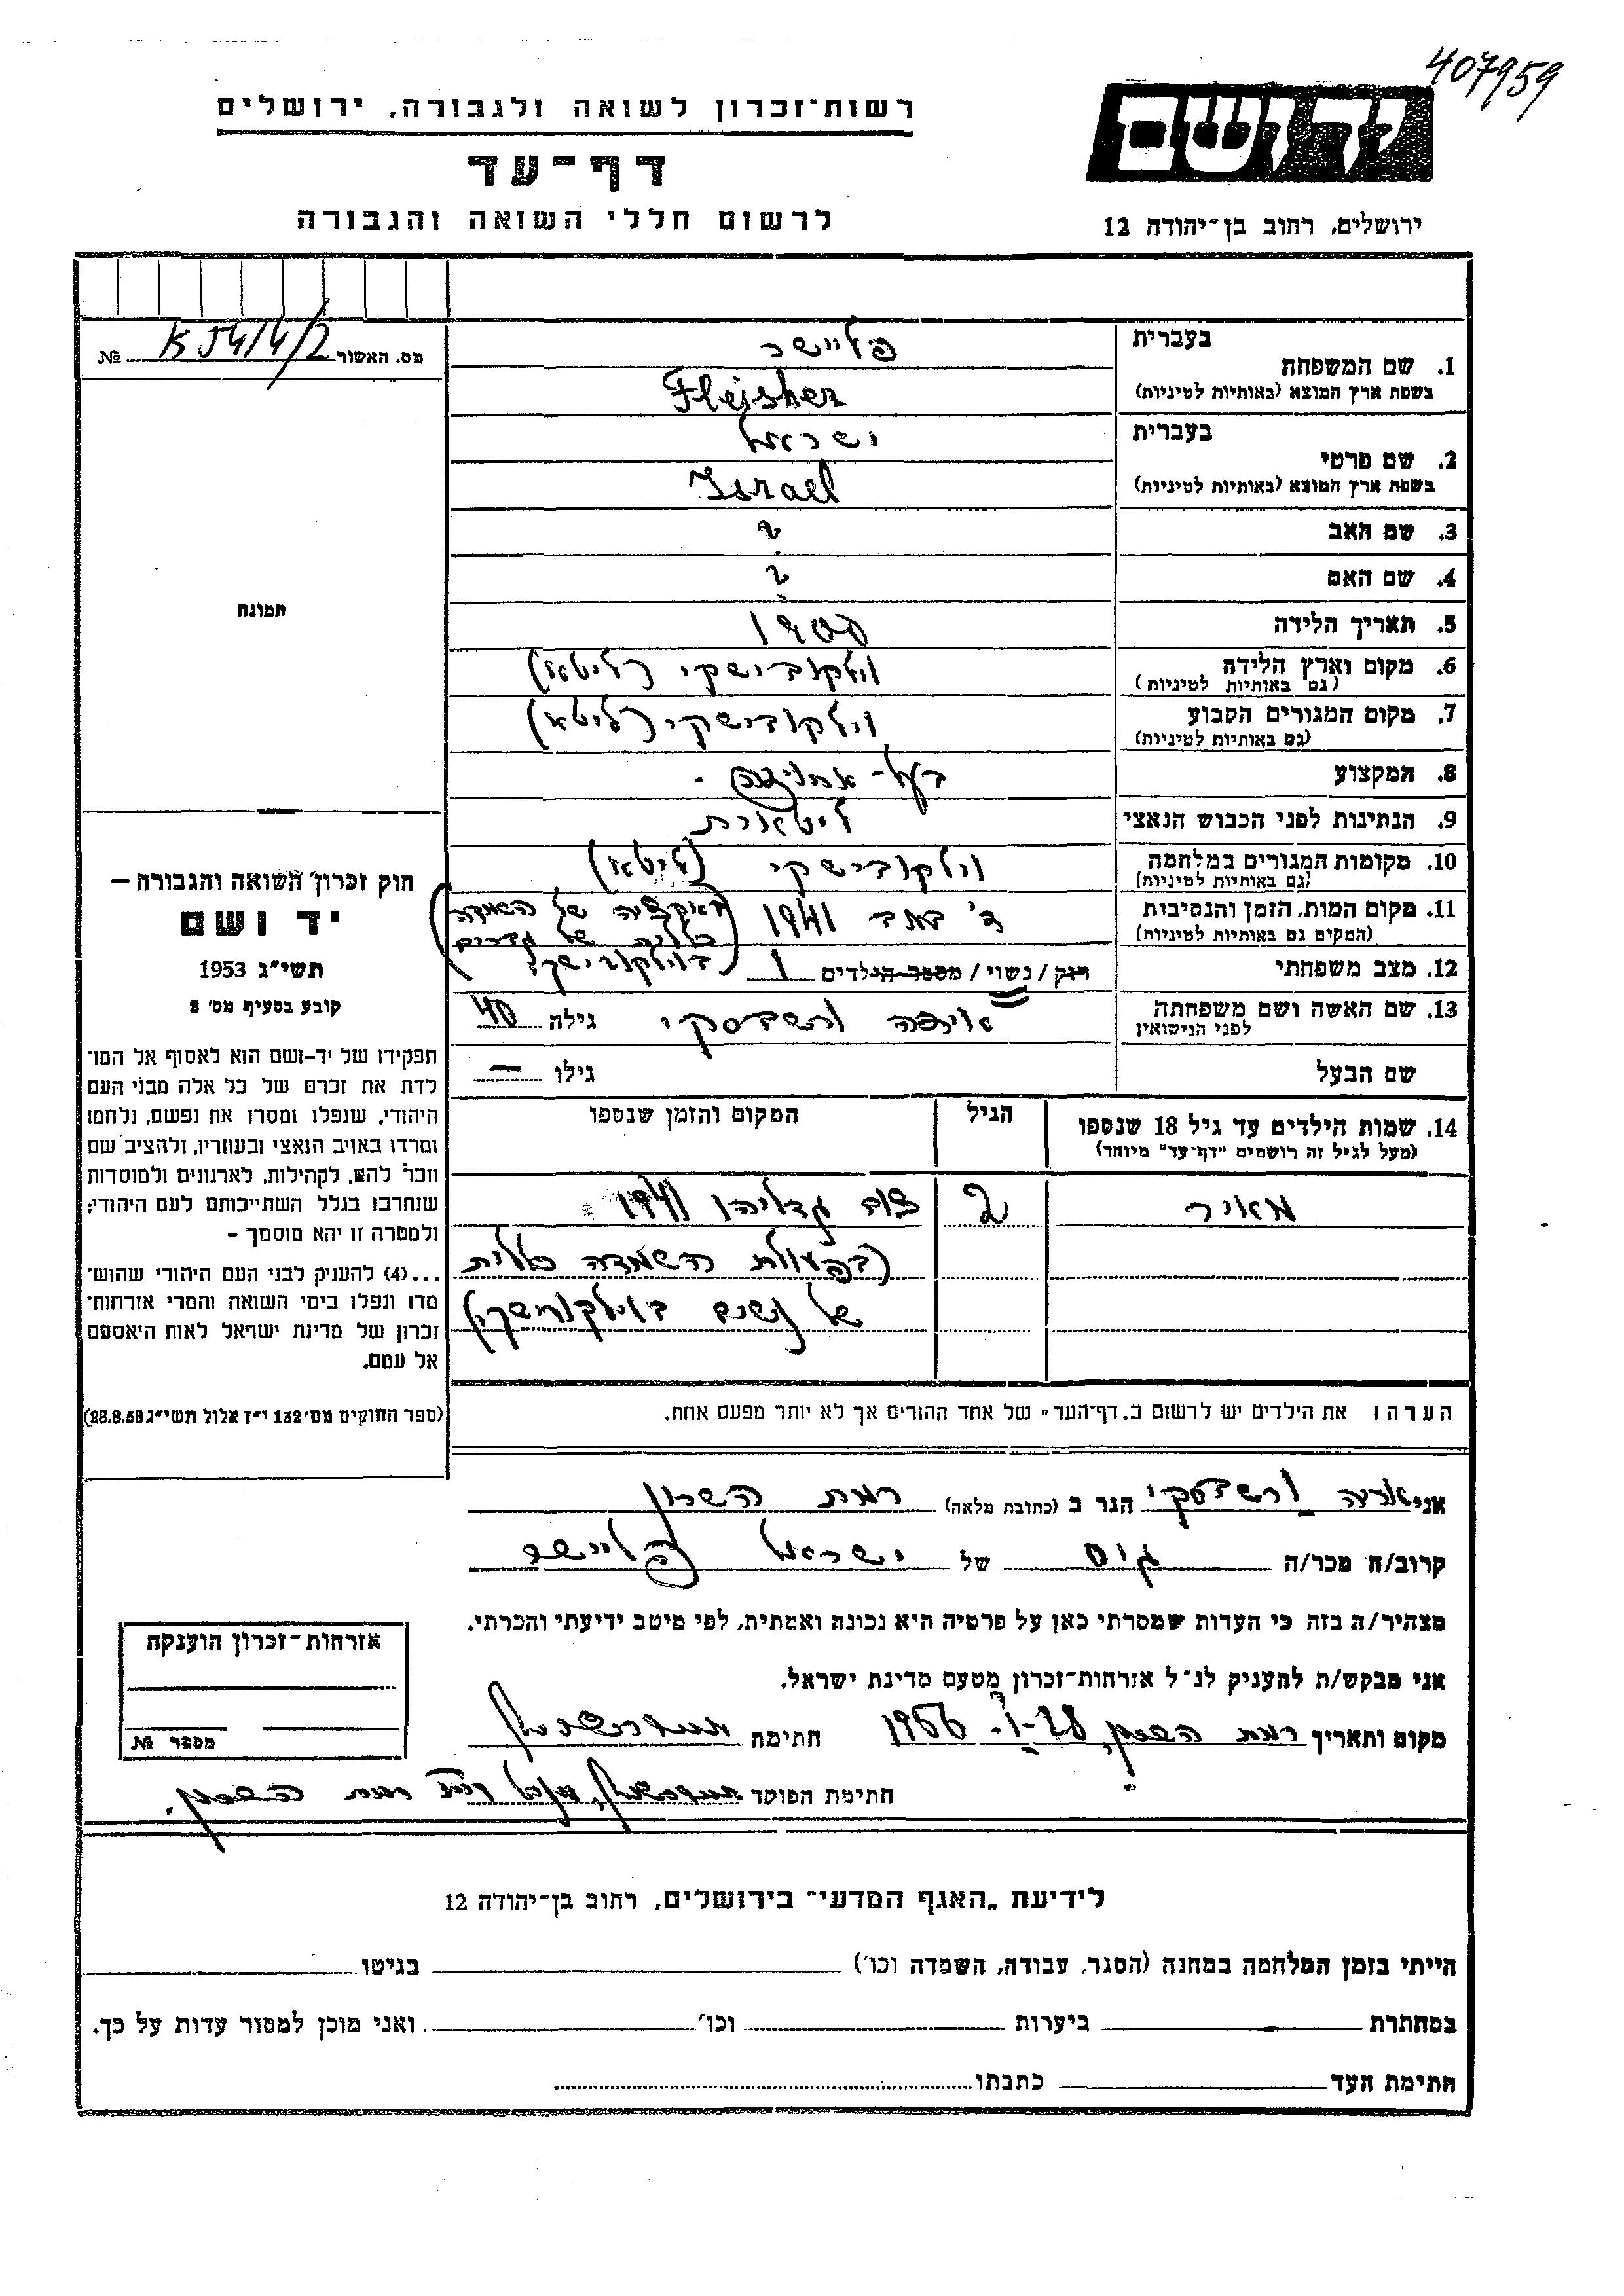 407959
רשות-זכרון לשואה ולגבורה, ירושלים
דף-עד
לרשום חללי השואה והגבורה
יד ושם
ירושלים, רחוב בן-יהודה 12
מס. האשור K 54/4/2 №
בעברית
1. שם המשפחה פליישר
בשפת ארץ המוצא (באותיות לטיניות) Fleisher
בעברית
2. שם פרטי ישראל
בשפת ארץ המוצא (באותיות לטיניות) Israel
3. שם האב ?
4. שם האם ?
5. תאריך הלידה 1900
6. מקום וארץ הלידה וילקובישקי (ליטא)
(גם באותיות לטיניות)
7. מקום המגורים הקבוע וילקובישקי (ליטא)
(גם באותיות לטיניות)
8. המקצוע בעל-
9. הנתינות לפני הכבוש הנאצי ליטאית
10. מקומות המגורים במלחמה וילקובישקי (ליטא)
(גם באותיות לטיניות)
11. מקום המות, הזמן והנסיבות ה' באב 1941 (באקציה של השמדה
(המקום גם באותיות לטיניות) כללית של גברים
בוילקובישקי)
12. מצב משפחתי רווק / נשוי / מספר הילדים 1
13. שם האשה ושם משפחתה ורשבסקי גילה 40
לפני הנישואין
שם הבעל גילו —
14. שמות הילדים עד גיל 18 שנספו הגיל המקום והזמן שנספו
(מעל לגיל זה רושמים "דף-עד" מיוחד)
מאיר 2 צום גדליהו 1941
(בפעולת השמדה כללית
של נשים בוילקובישקי)
הערה: את הילדים יש לרשום ב„דף-העד" של אחד ההורים אך לא יותר מפעם אחת.
תמונה
חוק זכרון השואה והגבורה —
יד ושם
תשי"ג 1953
קובע בסעיף מס' 2
תפקידו של יד-ושם הוא לאסוף אל המו־
לדת את זכרם של כל אלה מבני העם
היהודי, שנפלו ומסרו את נפשם, נלחמו
ומרדו באויב הנאצי ובעוזריו, ולהציב שם
וזכר להם, לקהילות, לארגונים ולמוסדות
שנחרבו בגלל השתייכותם לעם היהודי;
ולמטרה זו יהא מוסמך -
...(4) להעניק לבני העם היהודי שהוש־
מדו ונפלו בימי השואה והמרי אזרחות־
זכרון של מדינת ישראל לאות היאספם
אל עמם.
(ספר החוקים מס' 132 י"ז אלול תשי"ג 28.8.53)
אני אריה ורשבסקי הגר ב (כתובת מלאה) רמת השרון
קרוב/ה מכר/ה גיס של ישראל פליישר
מצהיר/ה בזה כי העדות שמסרתי כאן על פרטיה היא נכונה ואמתית, לפי מיטב ידיעתי והכרתי.
אני מבקש/ת להעניק לנ"ל אזרחות-זכרון מטעם מדינת ישראל.
מקום ותאריך רמת השרון, 28-1-1956 חתימה
חתימת הפוקד רמת השרון.
אזרחות-זכרון הוענקה
מספר №
לידיעת „האגף המדעי" בירושלים, רחוב בן-יהודה 12
הייתי בזמן המלחמה במחנה (הסגר, עבודה, השמדה וכו') בגיטו
במחתרת ביערות וכו' ואני מוכן למסור עדות על כך.
חתימת העד כתבתו